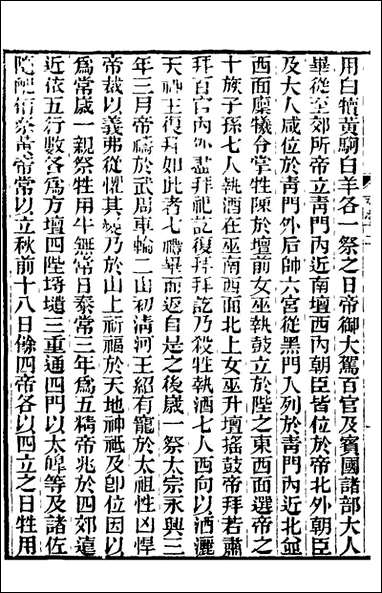 用白犢黃駒白羊各一祭之日帝御大駕百官及賓國諸部大人
畢從至郊所帝立青門內近南壇西內朝臣皆位於帝北外朝臣
及大人咸位於青門外后帥六宮從黑門入列於青門內近北並
西面廩犧令掌牲陳於壇前女巫執鼓立於陛之東西面選帝之
十族子孫七人執酒在巫南西面北上女巫升壇搖鼓帝拜若肅
拜百官內外盡拜祀訖復拜拜訖乃殺牲執酒七人西向以酒灑
天神主復拜如此者七禮畢而返自是之後歲一祭太宗永興三
年三月帝禱於武周車輪二山初清河王紹有寵於太祖性凶悍
帝裁以義弗從懼其變乃於山上祈福於天地神祇及卽位因以
爲常歲一親祭牲用牛無常日泰常三年爲五精帝兆於四郊遠
近依五行數各爲方壇四陛埒壝三重通四門以太皥等及諸佐
配衍祭黃帝常以立秋前十八日餘四帝各以四立之日牲用